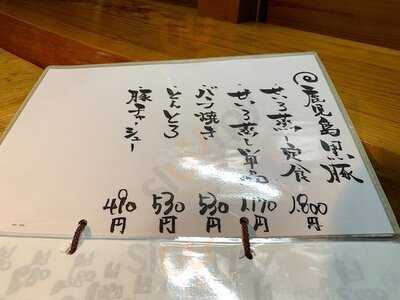 鹿児島黒豚
・せいろ蒸し定食 1,800円
・せいろ蒸し単品 1,170円
・バラ焼き 530円
・とんとろ 530円
・豚チャーシュー 490円